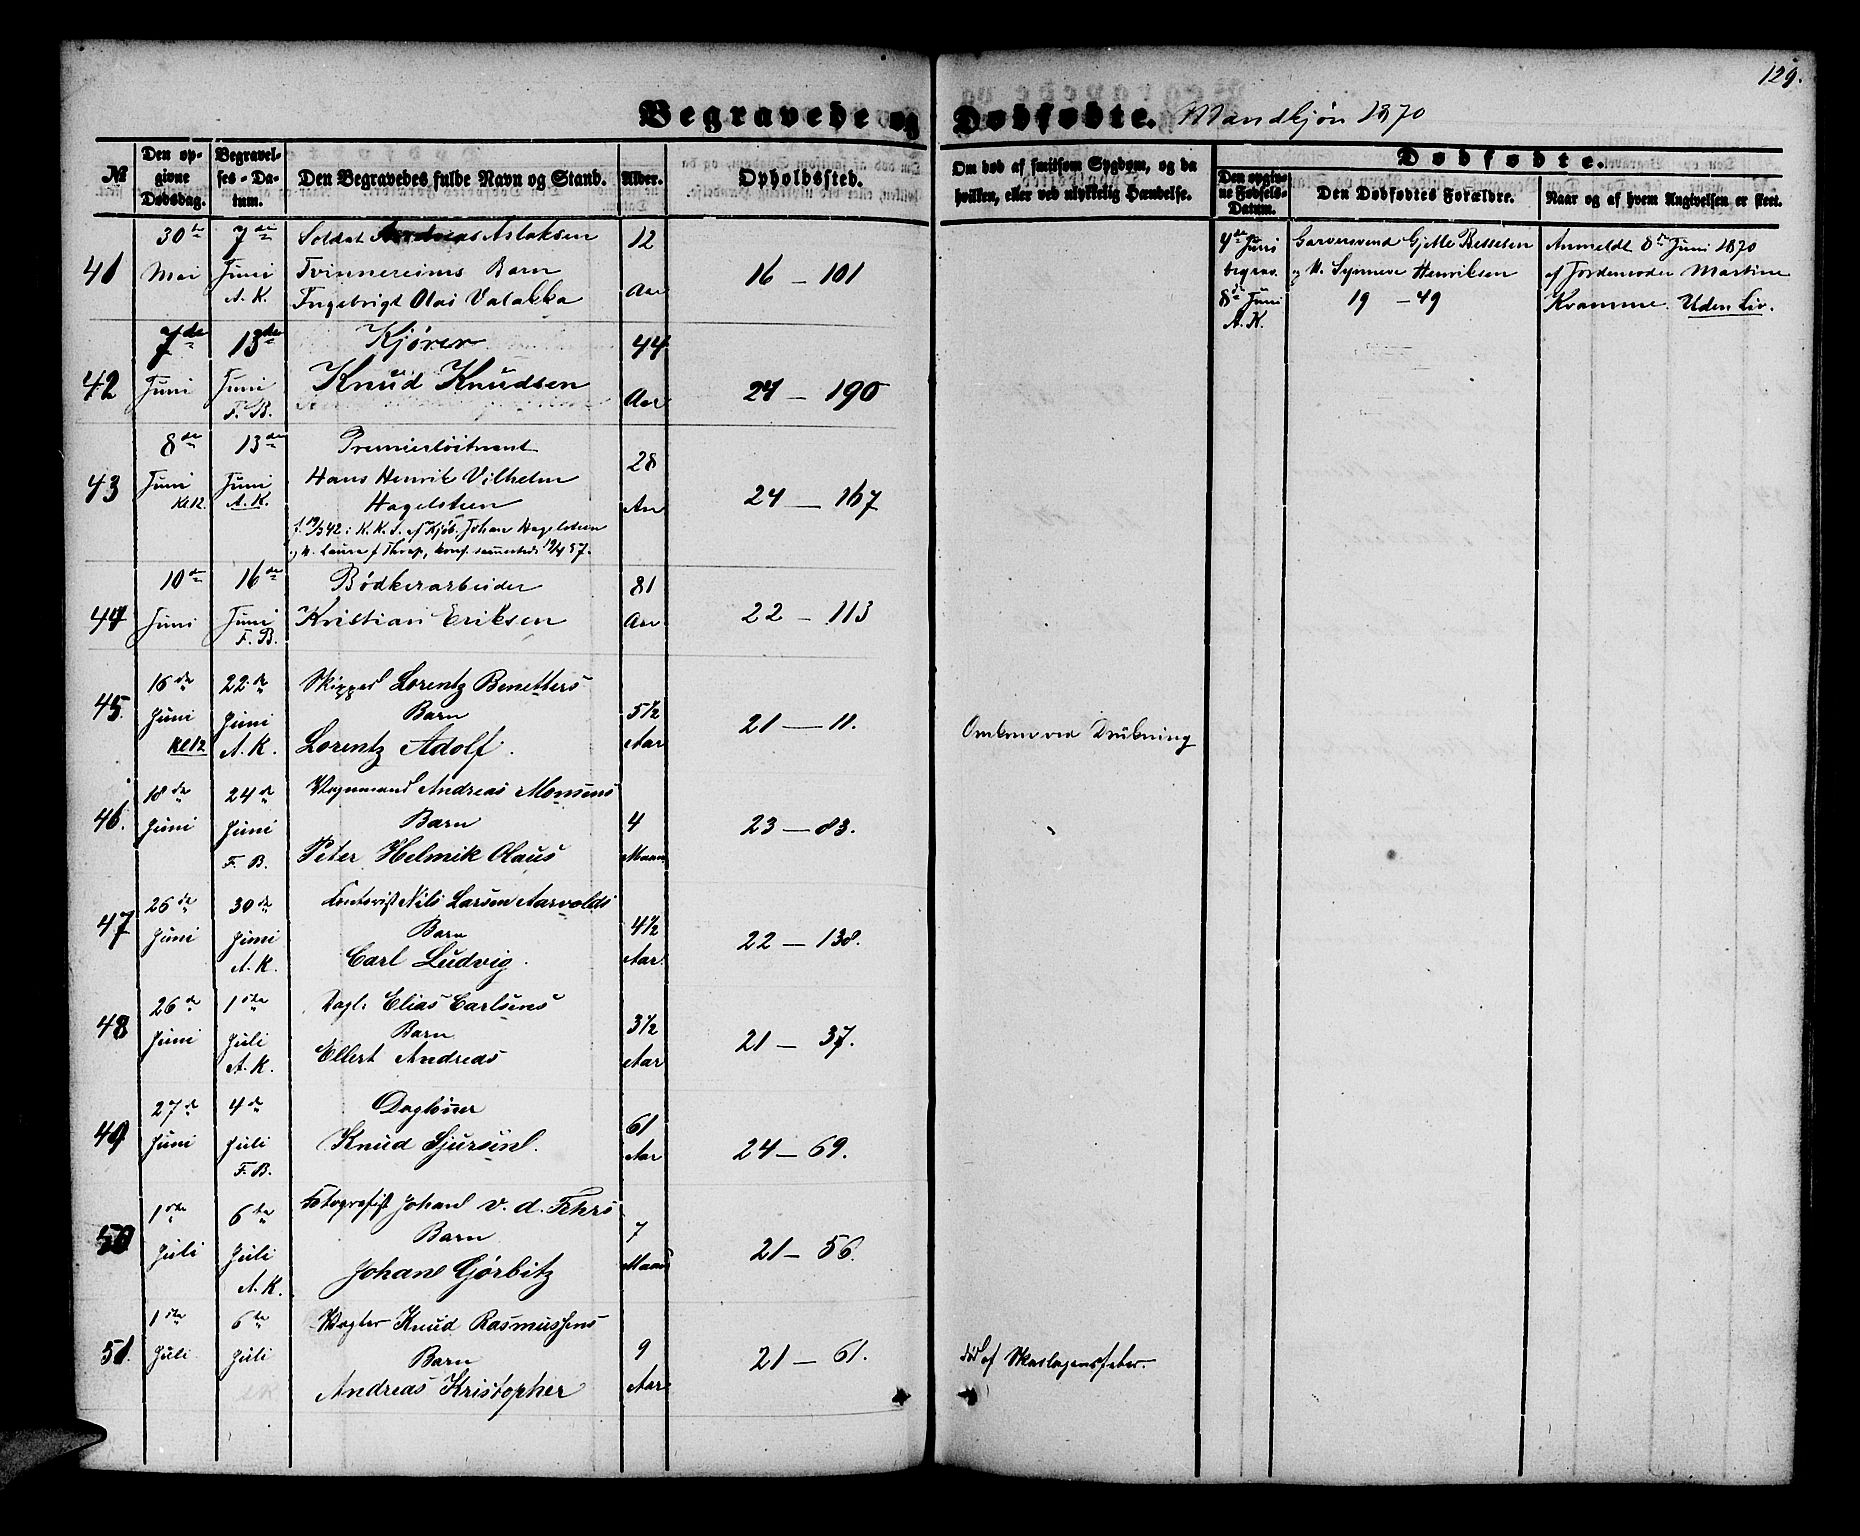 129.
Begravede og Dødfødte. Mandkjøn 1870
№
Den opgivne Dødsdag.
Begravelses-Datum.
Den Begravedes fulde Navn og Stand.
Alder.
Opholdssted.
Om død af smitsom Sygdom, og da hvilken, eller ved ulykkelig Hændelse.
Dødfødte.
Den opgivne Fødsels-Datum.
Den Dødfødtes Forældre.
Naar og af hvem Angivelsen er skeet.
41
30te Mai
7de Juni A. K.
Soldat Andreas Aslaksen
Tvinnereims Barn
Ingebrigt Olai Valakka
12 Aar
16 — 101
4de Juni begrav. 8de Juni A. K.
Garversvend Gjelle Bessesen
og H. Synneve Henriksen
19 — 49
Anmeldt 8de Juni 1870
af Jordemoder Martine
Kvamme. Uden Liv.
42
7de Juni
13de Juni F. B.
Kjører
Knud Knudsen
44 Aar
24 — 190
43
8de Juni Kl 12.
13de Juni A. K.
Premierløitnant
Hans Henrik Vilhelm
Hagelsteen
K. K. af Kjøb. Johan Hagelsteen
28 Aar
24 — 167
44
10de Juni
16de Juni F. B.
Bødkerarbeider
Kristian Eriksen
81 Aar
22 — 113
45.
16de Juni Kl 12
22de Juni A. K.
Skipper Lorentz Benetters
Barn
Lorentz Adolf.
5½ Aar
21 — 11.
Omkom ved Drukning
46.
18de Juni
24de Juni F. B.
Vognmand Andreas Monsens
Barn
Peter Helmik Olaus
4 Maan
23 — 83.
47
26de Juni
30de Juni A. K.
Nils Larsen Aarvolds
Barn
Carl Ludvig.
4½ Aar.
22 — 138.
48
26de Juni
1ste Juli A. K.
Dagl. Elias Carlsens
Barn
Ellert Andreas
3½ Aar
21 — 37.
49
27de Juni
4de Juli F. B.
Dagløner
Knud Sjursen.
61 Aar
24 — 69.
50
1ste Juli
6te Juli A. K.
Fotografist Johan v. d. Fehrs
Barn
Johan Gørbitz
7 Maan
21 — 56.
51.
1ste Juli
6te Juli
Vægter Knud Rasmussens
Barn
Andreas Kristopher
9 Aar
21 — 61.
død af Skarlagensfeber.